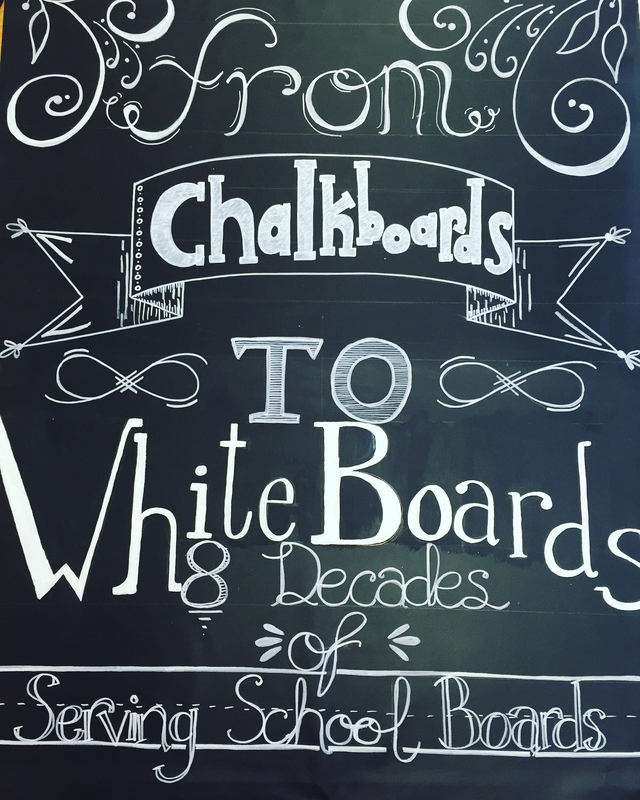 From
Chalkboards
TO
WhiteBoards
8 Decades
of
Serving School Boards